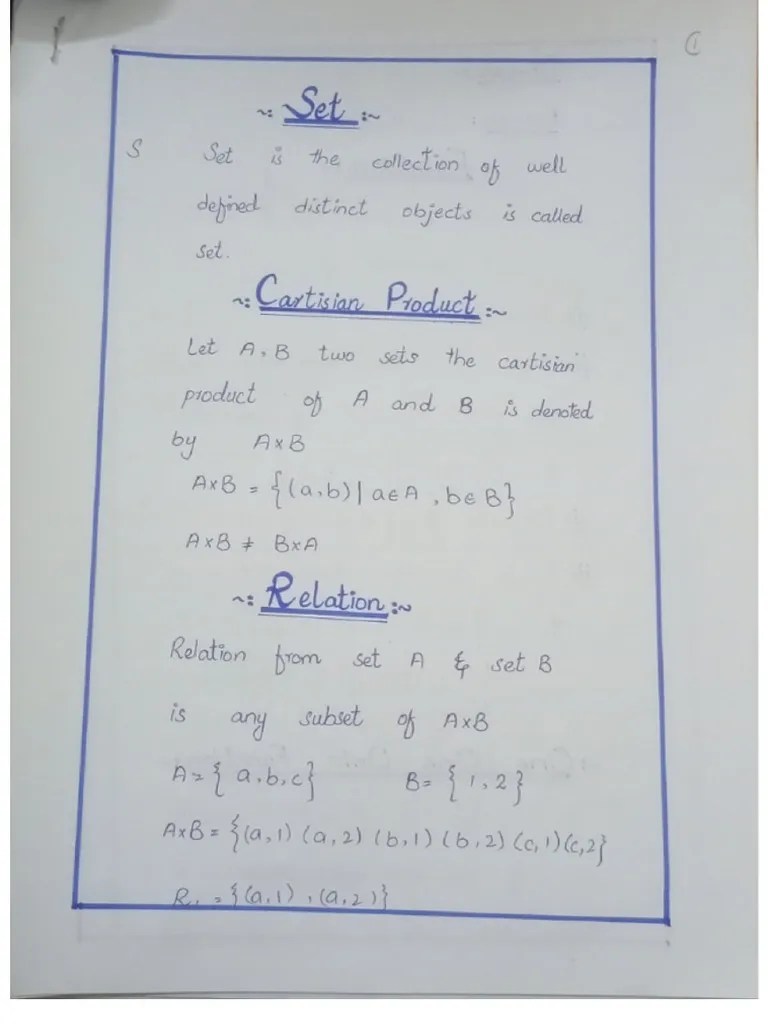 ①
~: Set :~
S Set is the collection of well
defined distinct objects is called
set.
~: Cartisian Product :~
Let A, B two sets the cartisian
product of A and B is denoted
by A×B
A×B = {(a,b)| a∈A, b∈B}
A×B ≠ B×A
~: Relation :~
Relation from set A & set B
is any subset of A×B
A = { a,b,c} B = { 1,2}
A×B = {(a,1) (a,2) (b,1) (b,2) (c,1)(c,2}
R₁ = {(a,1), (a,2)}